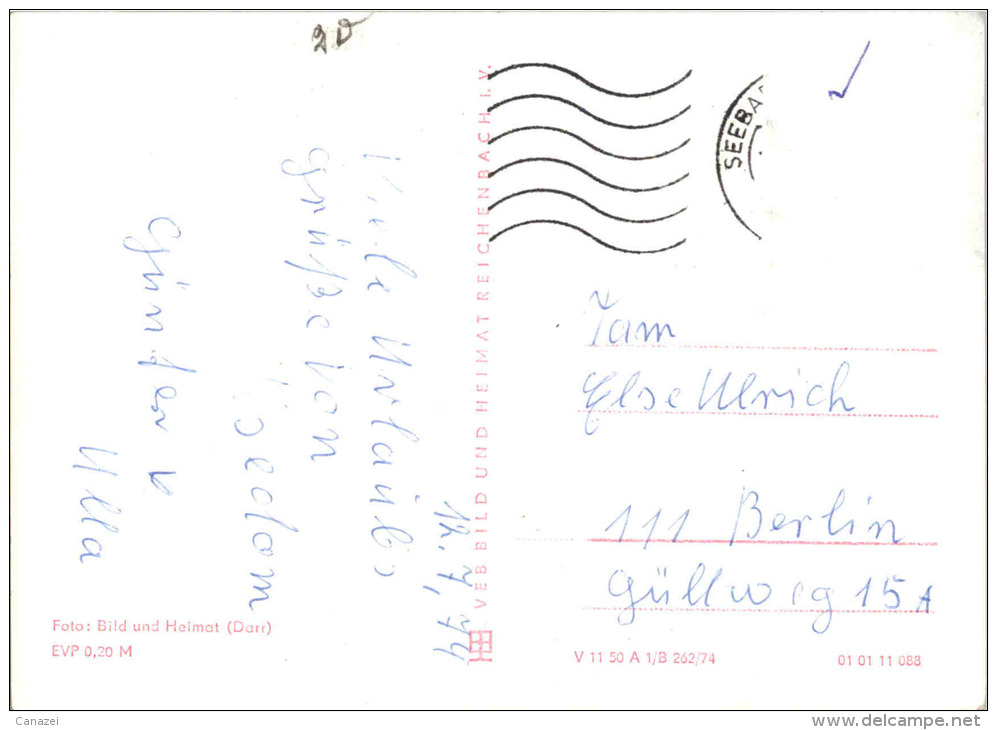 20
12.7.74
Viele Urlaubs
grüße von
Usedom
Günter u
Ulla
VEB BILD UND HEIMAT REICHENBACH I. V.
SEEBA
Fam
Else Ulrich
111 Berlin
Güllweg 15A
Foto: Bild und Heimat (Darr)
EVP 0,20 M
V 11 50 A 1/B 262/74
01 01 11 088
Canazei
www.delcampe.net